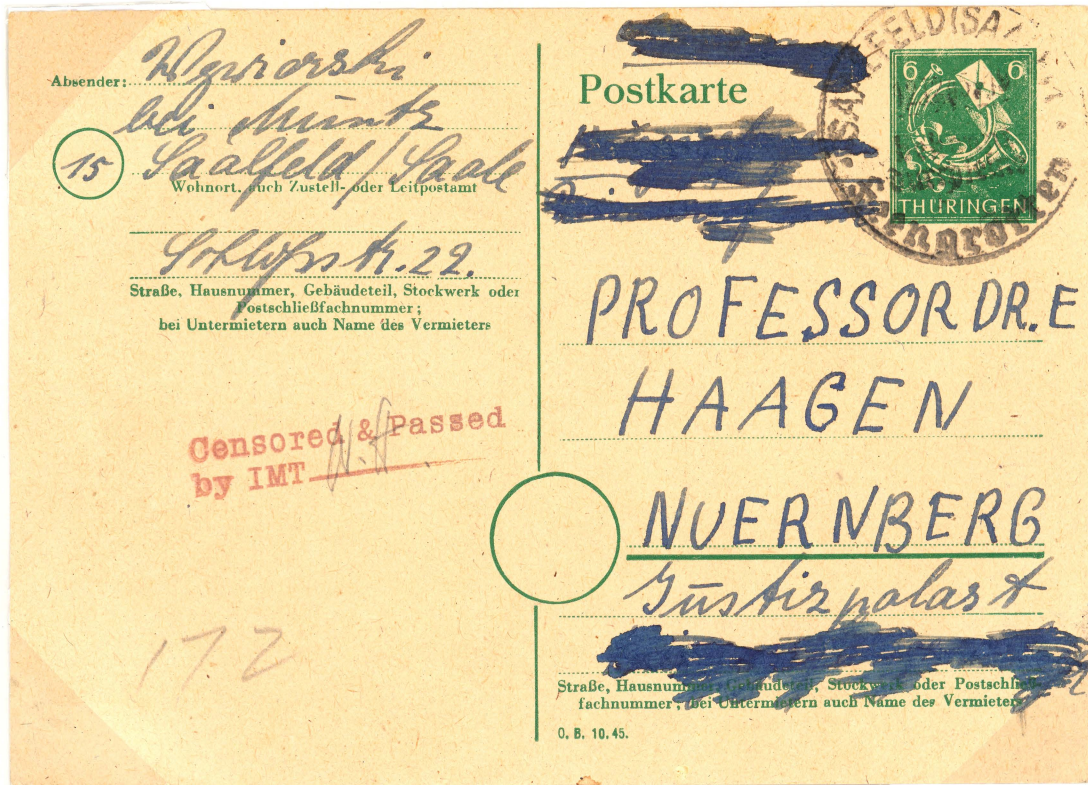 Absender: Wywiorski
bei Muntz
15 Saalfeld / Saale
Wohnort, auch Zustell- oder Leitpostamt
Schloßstr. 22.
Straße, Hausnummer, Gebäudeteil, Stockwerk oder
Postschließfachnummer;
bei Untermietern auch Name des Vermieters
Censored & Passed
by IMT
172
Postkarte
SAALFELD (SAALE)
Feengrotten
6 6
THÜRINGEN
PROFESSOR DR. E
HAAGEN
NUERNBERG
Justizpalast
Straße, Hausnummer, Gebäudeteil, Stockwerk oder Postschließ-
fachnummer; bei Untermietern auch Name des Vermieters
O. B. 10. 45.